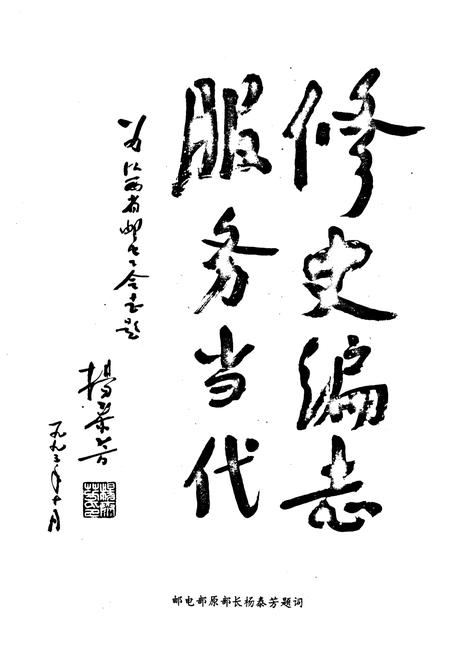 修史编志
服务当代
为江西省邮电工会志题
杨泰芳
一九九三年十月
邮电部原部长杨泰芳题词